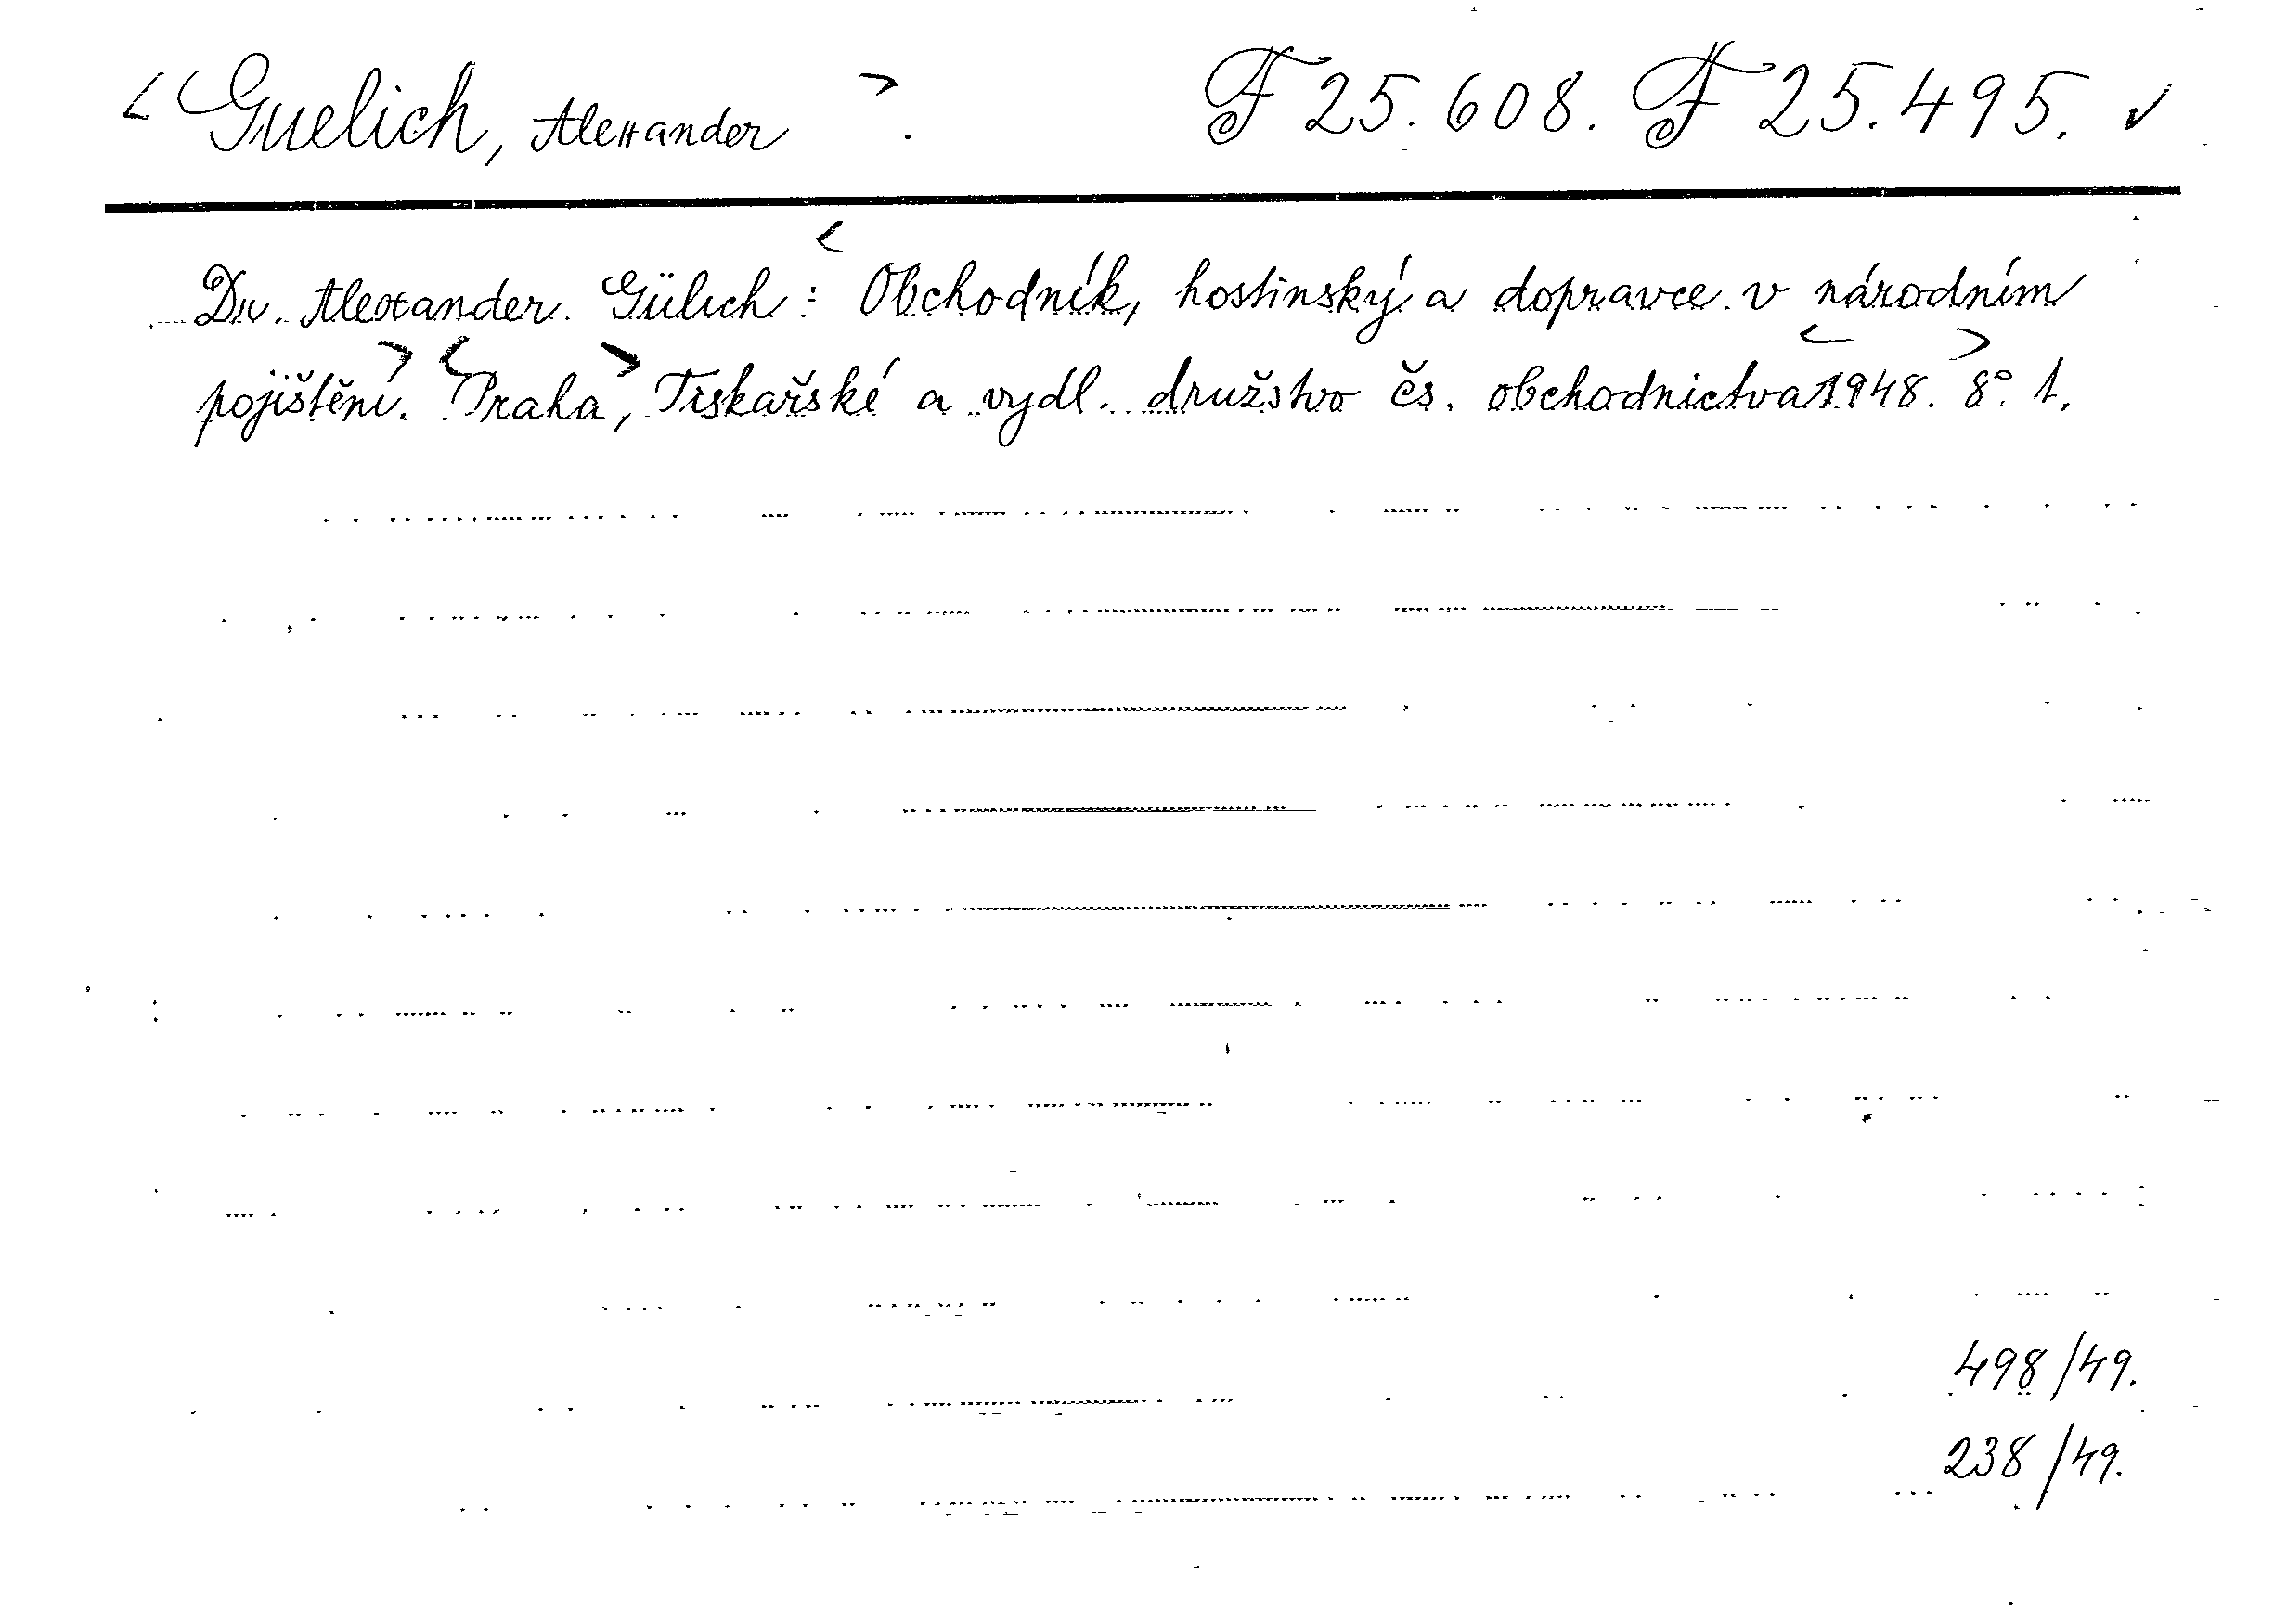 < Guelich, Alexander > . F 25.608. F 25.495. ✓
Dr. Alexander Gülich: < Obchodník, hostinský a dopravce v národním
pojištění. > < Praha >, Tiskařské a vydl. družstvo čs. obchodnictva < 1948. > 8°. 1.
498/49.
238/49.